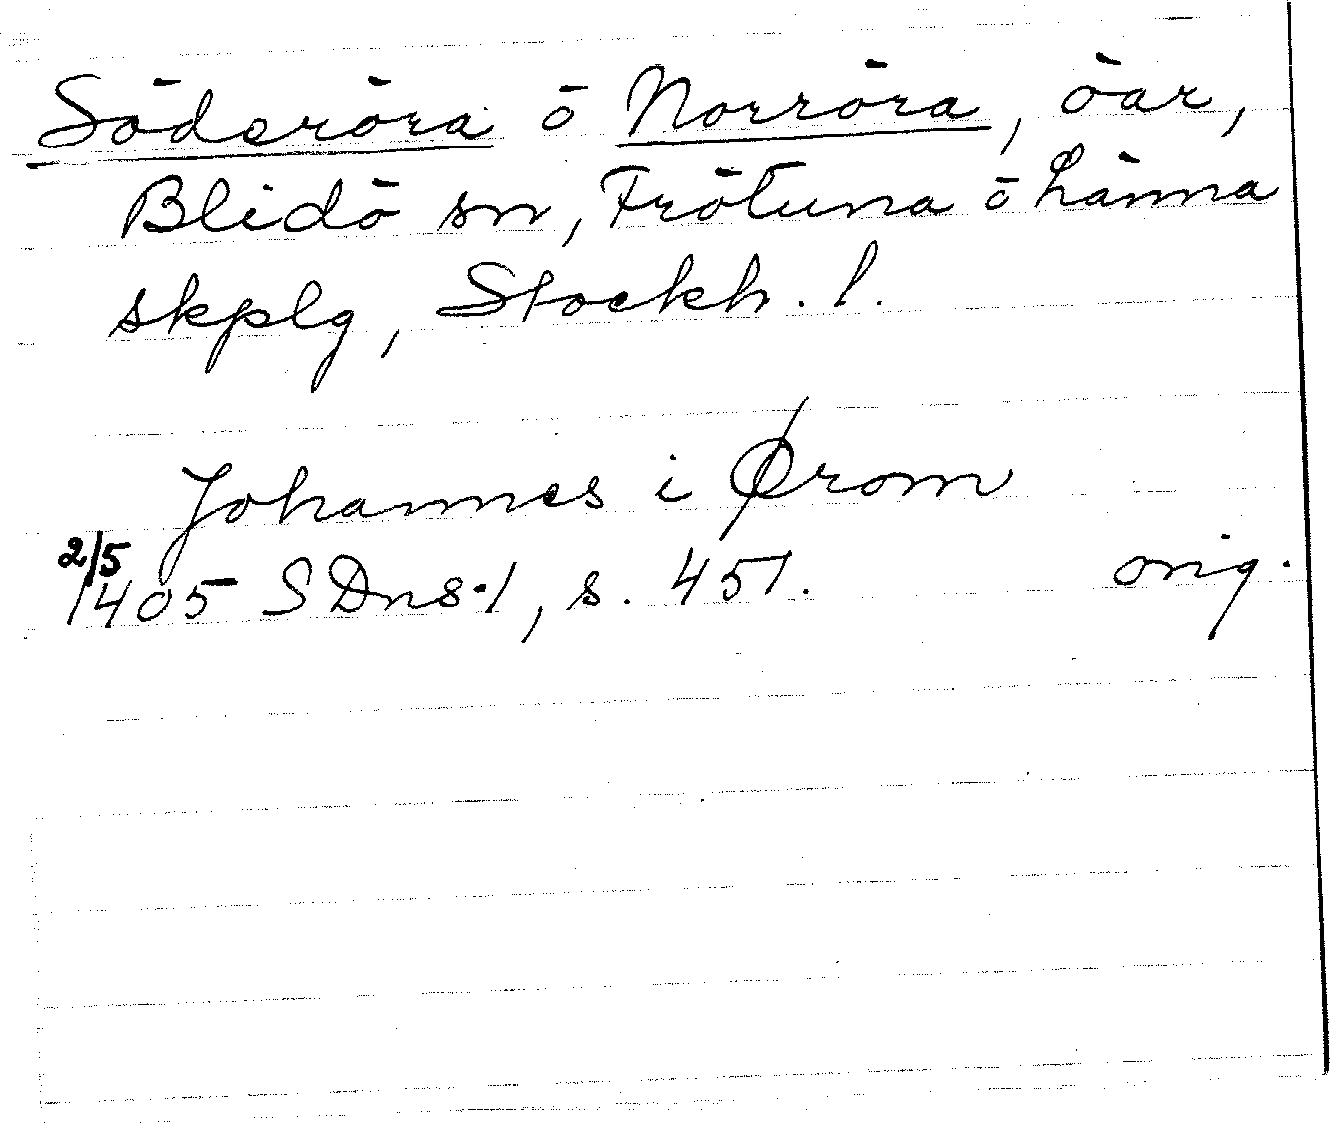 Söderöra o Norröra, öar,
Blidö sn, Frötuna o Länna
skplg, Stockh. l.
Johannes i Ørom
2/5
1405 SDns 1, s. 451. orig.